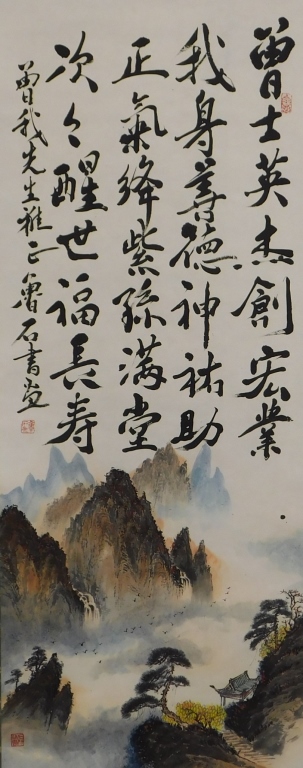 曾士英杰創宏業
我身善德神祐助
正氣絳紫孫滿堂
次々醒世福長寿
曾我先生雅正魯石書画